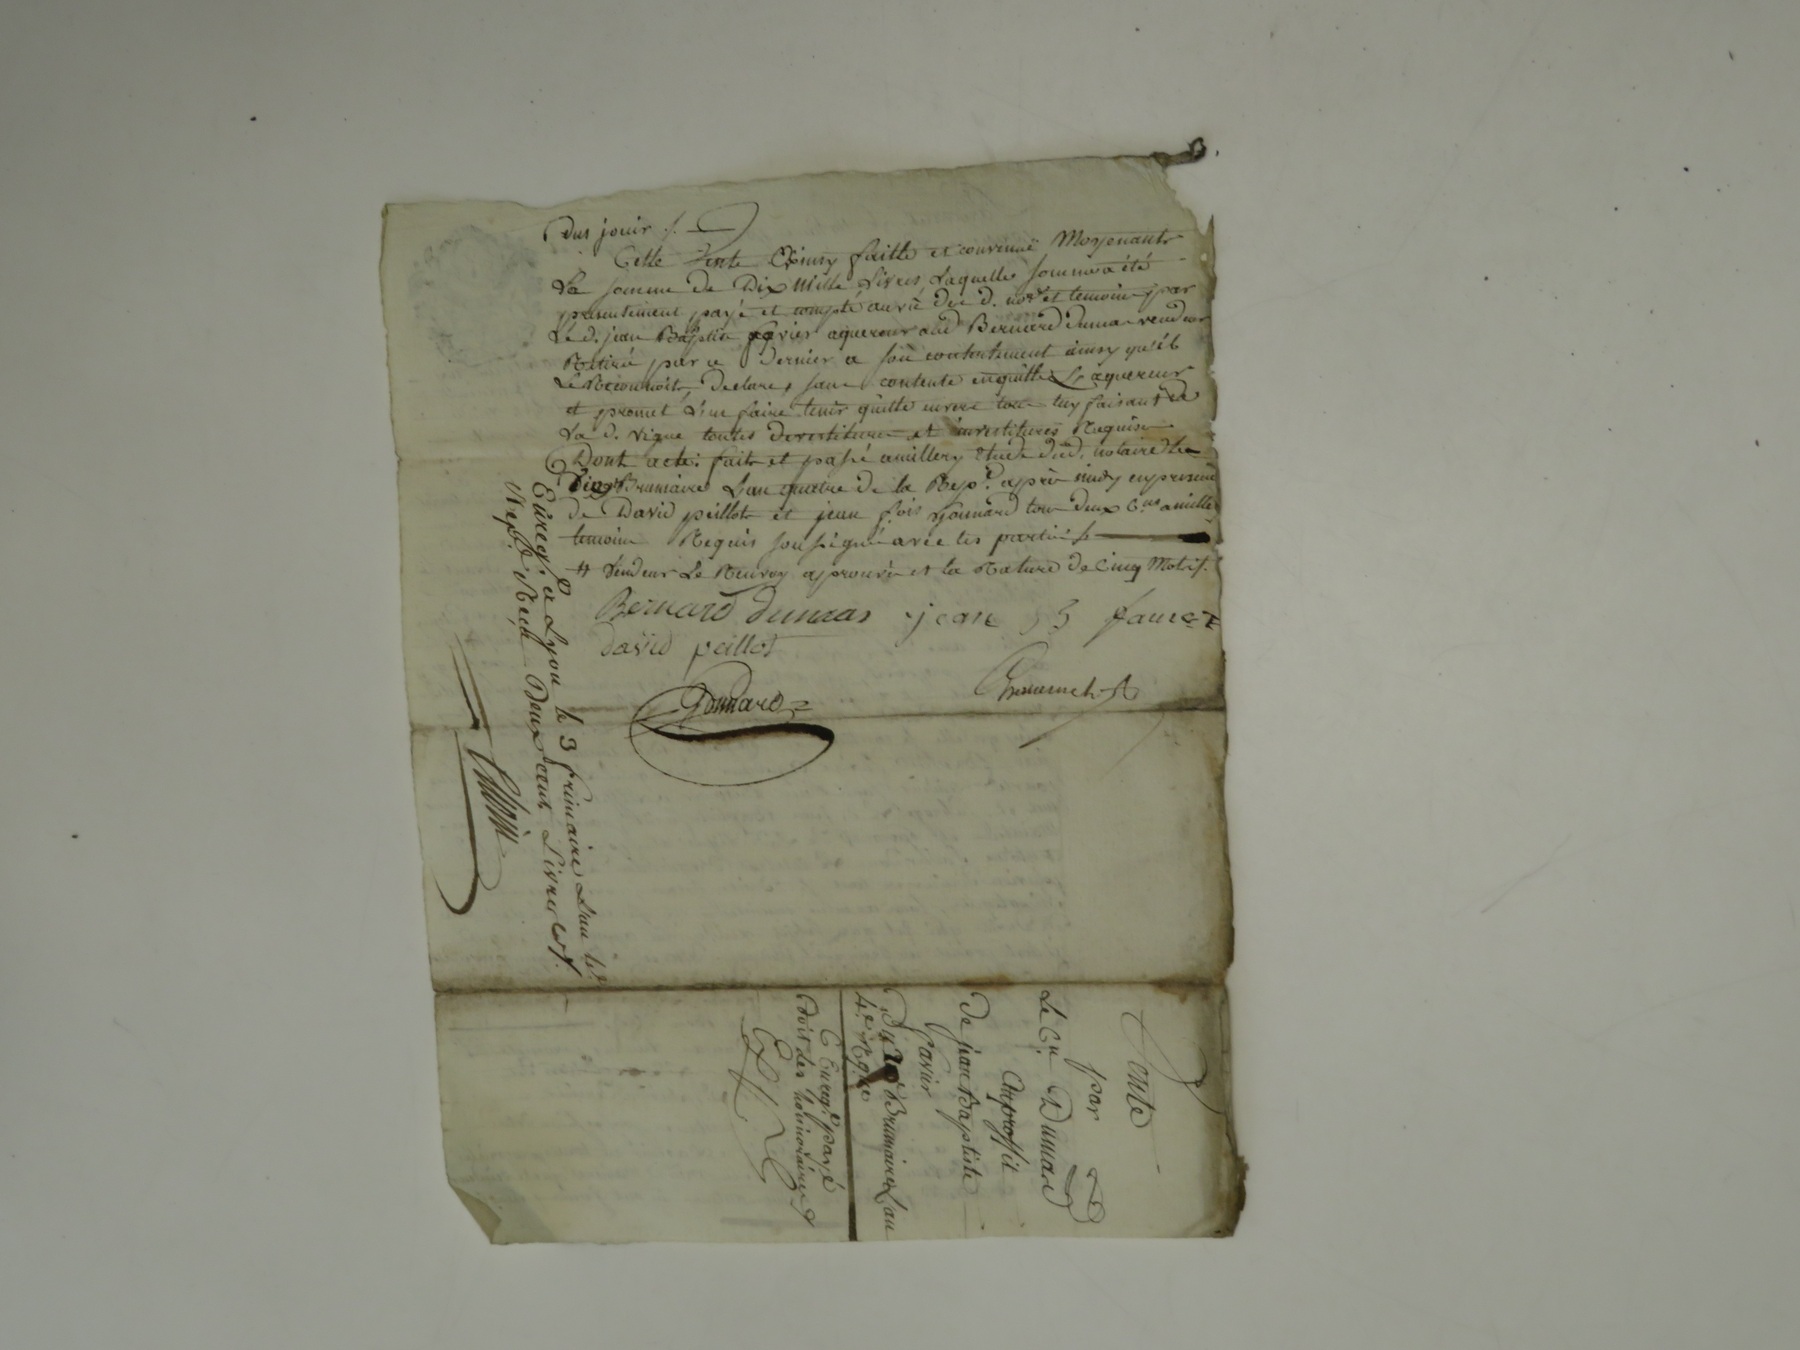 dus jouir /.
Cette Vente Ainsy faitte et convenuë Moyenant
La somme de Dix Mille Livres Laquelle somme a été
presentement payé et compté au vû du d. no.re et temoins par
Le d. jean Baptiste favier aquereur aud Bernard dumas vendeur
Retiré par ce dernier a son contentement ainsy qu'il
Le Reconnoit, declare, sans contente en quitte L'aquereur
et promet L'en faire tenir quitte envers tous luy faisant de
La d. vigne toutes devestitures et investitures Requises
Dont acte: fait et passé a millery Etude dud. notaire Le
Brumaire L'an quatre de la Rep.e après midy en presence
de David peillot et jean f.ois gonnard tous deux C.ns a millery
temoins Requis soussignés avec les parties /.
# Vendeur Le Renvoy approuvé et la Rature de Cinq Mots /.
Bernard dumas jean favier
david peillot
Gonnard
Enreg.é a Lyon le 3 frimaire L'an 4.e
Rep.e Reçu Deux cent Livres
Vente
par
Le C.n Dumas
Au proffit
De jean Baptiste
favier
Du Brumaire L'an
4.e
L'Enreg.t payé
doit les honoraires